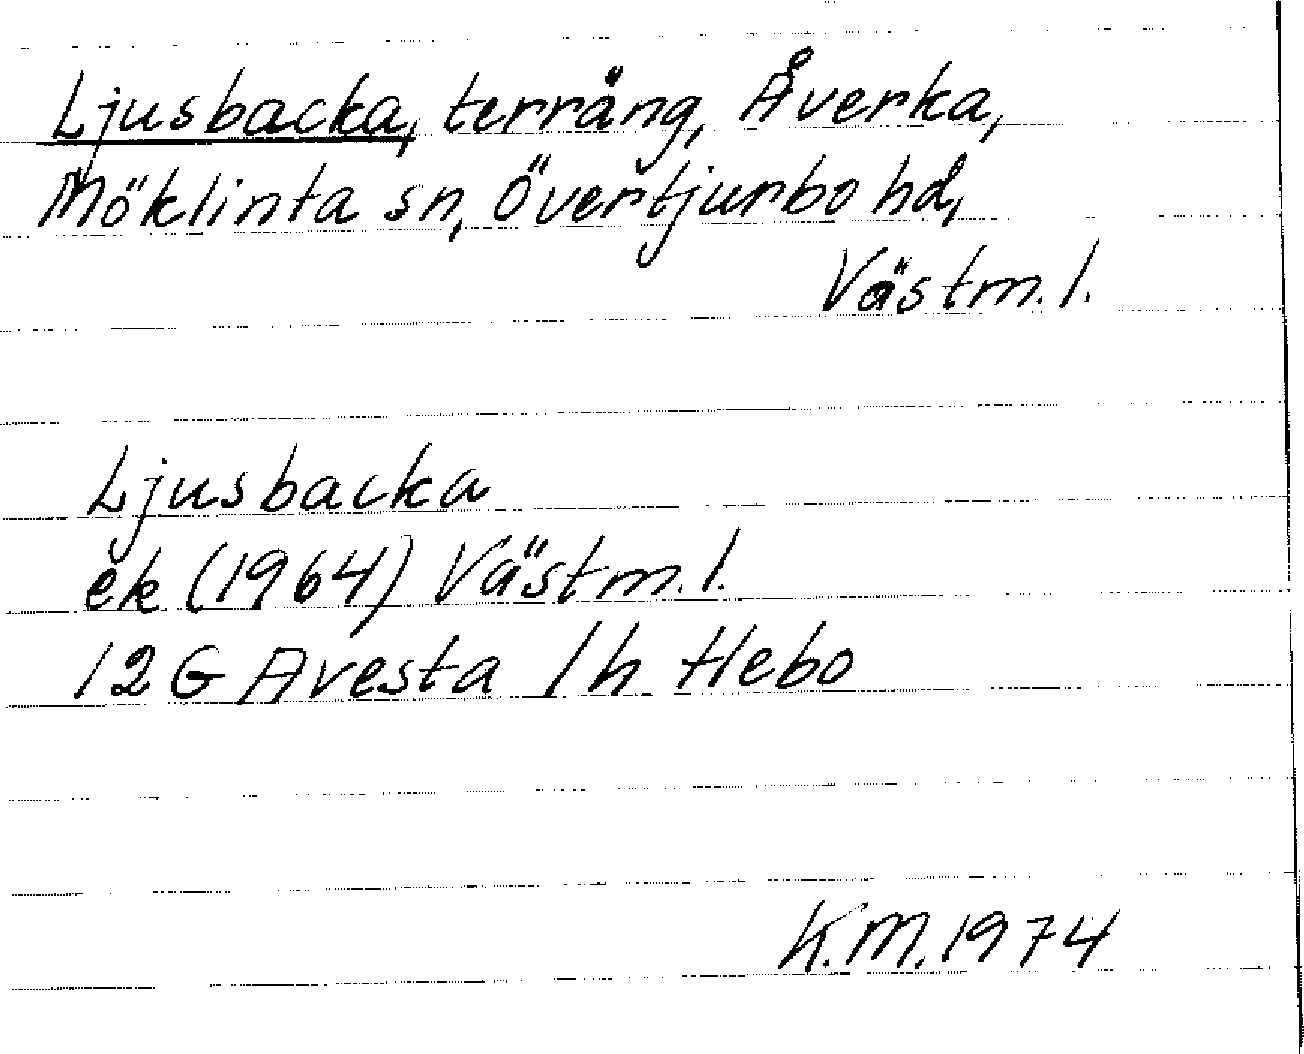 Ljusbacka, terräng, Åverka,
Möklinta sn, Övertjurbo hd,
Västm. l.
Ljusbacka
ek (1964) Västm. l.
12 G Avesta 1h Hebo
K.M. 1974